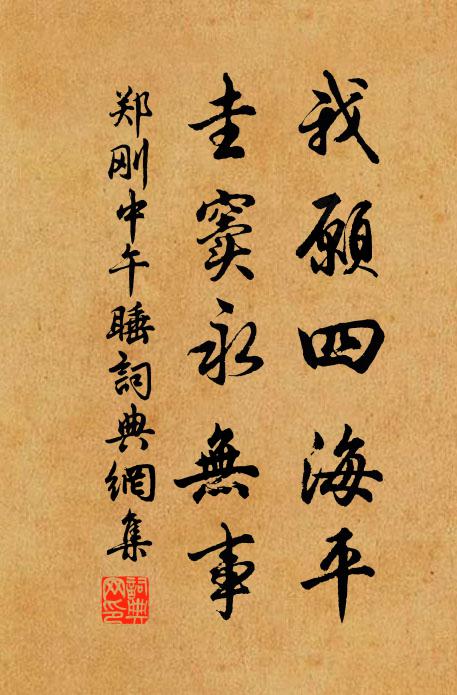 我願四海平
圭竇永無事
郑刚中午睡詞典網集
詞典网印